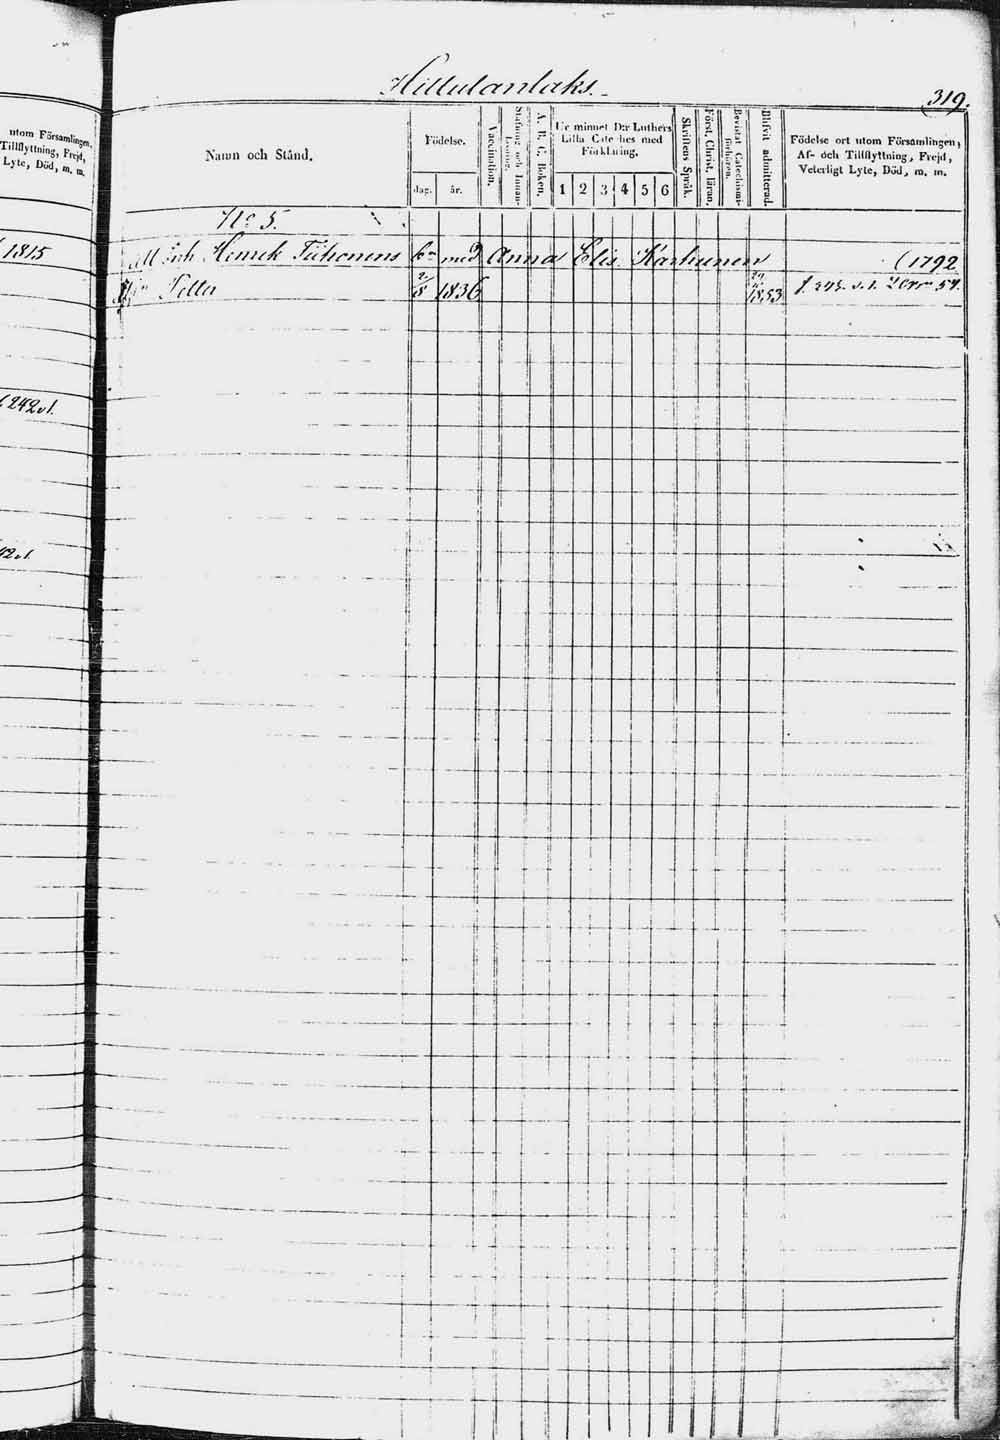 Hittulanlaks.
319.
utom Församlingen,
Tillflyttning, Frejd,
Lyte, Död, m. m.
1815
242 v. l.
42 v. l.
Namn och Stånd.
Födelse.
dag. år.
Vaccination.
Stafning och Innan-
läsning.
A. B. C. Boken.
Ur minnet D:r Luthers
Lilla Cateches med
Förklaring.
1 2 3 4 5 6
Skriftens Språk.
Först. Christ. läran.
Bevistat Catechismi-
förhören.
Blifvit admitterad.
Födelse ort utom Församlingen,
Af- och Tillflyttning, Frejd,
Veterligt Lyte, Död, m. m.
No 5.
Henrik Tiihonens med Anna Elis. Karhunen (1792
2/8 1836 1853 f. v. l. 54.